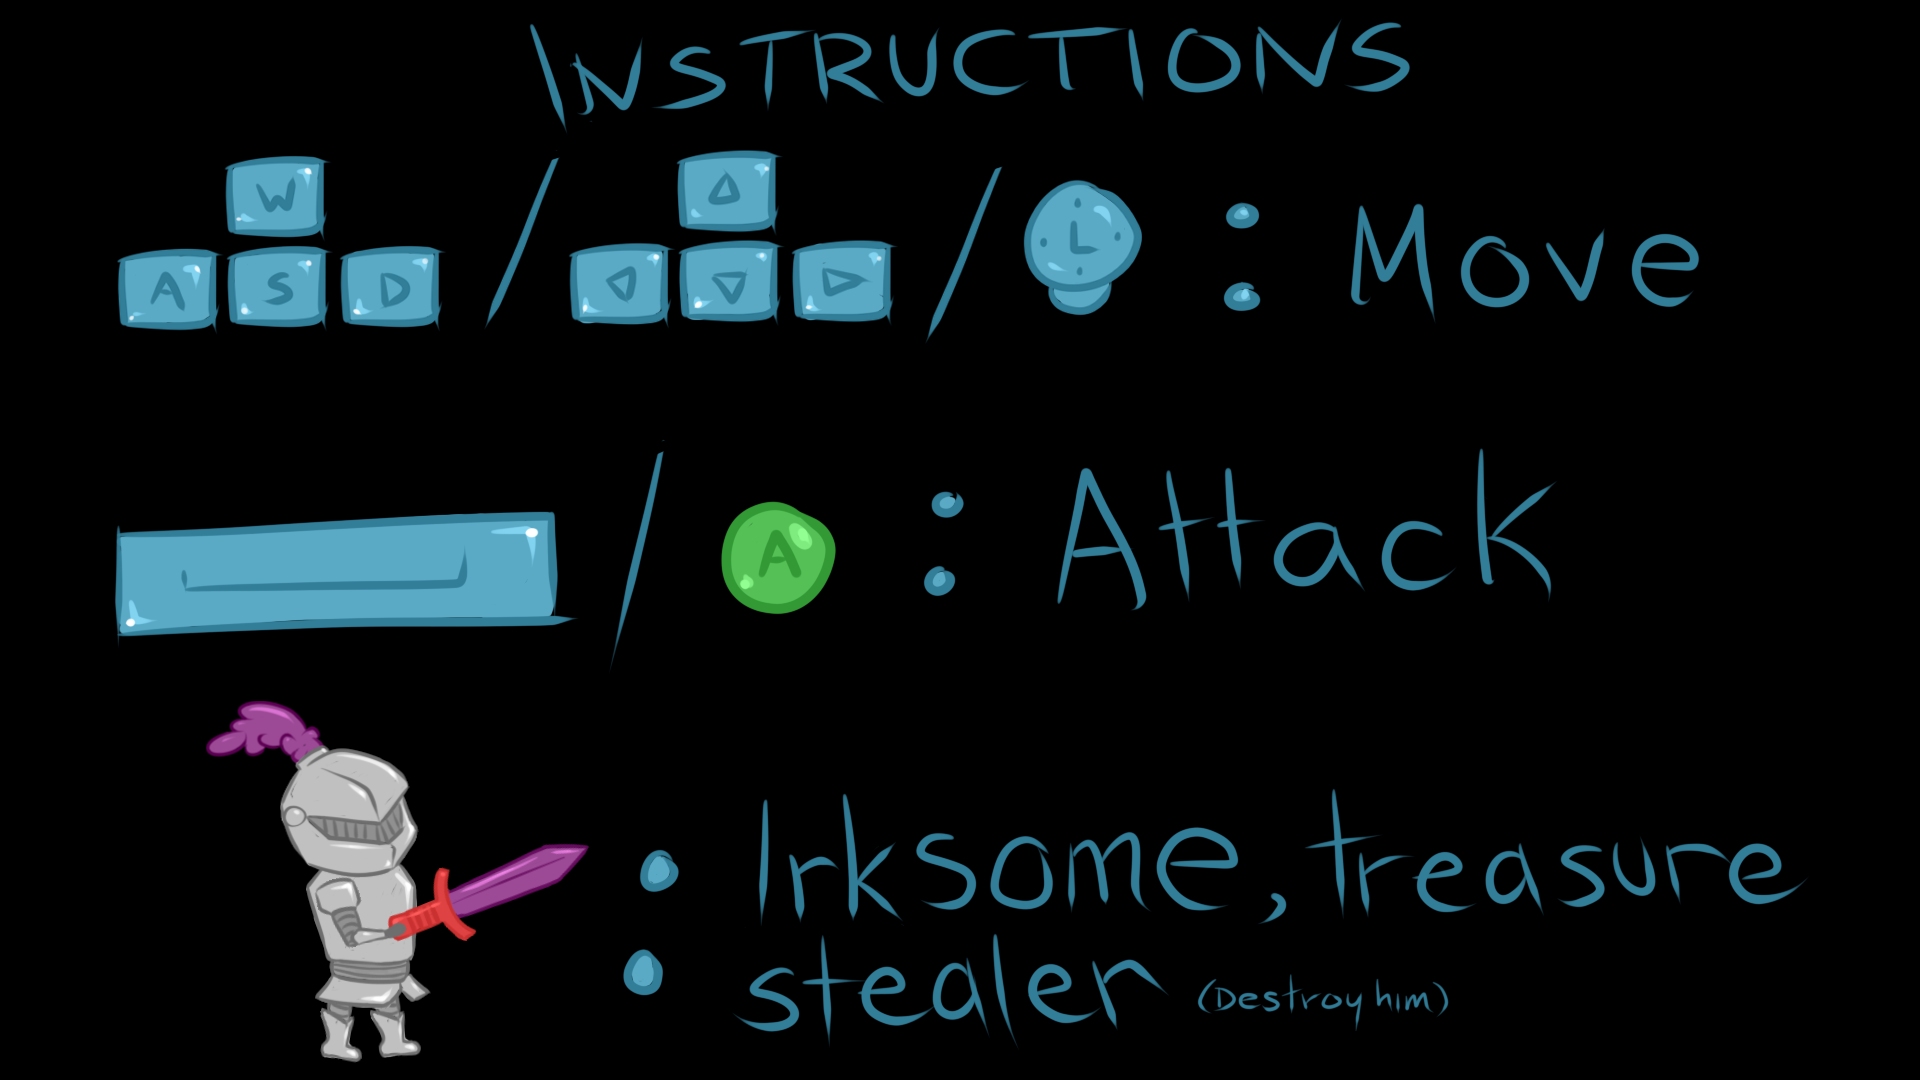 INSTRUCTIONS
W / / L : Move
A S D
/ A : Attack
: Irksome, treasure
stealer (Destroy him)